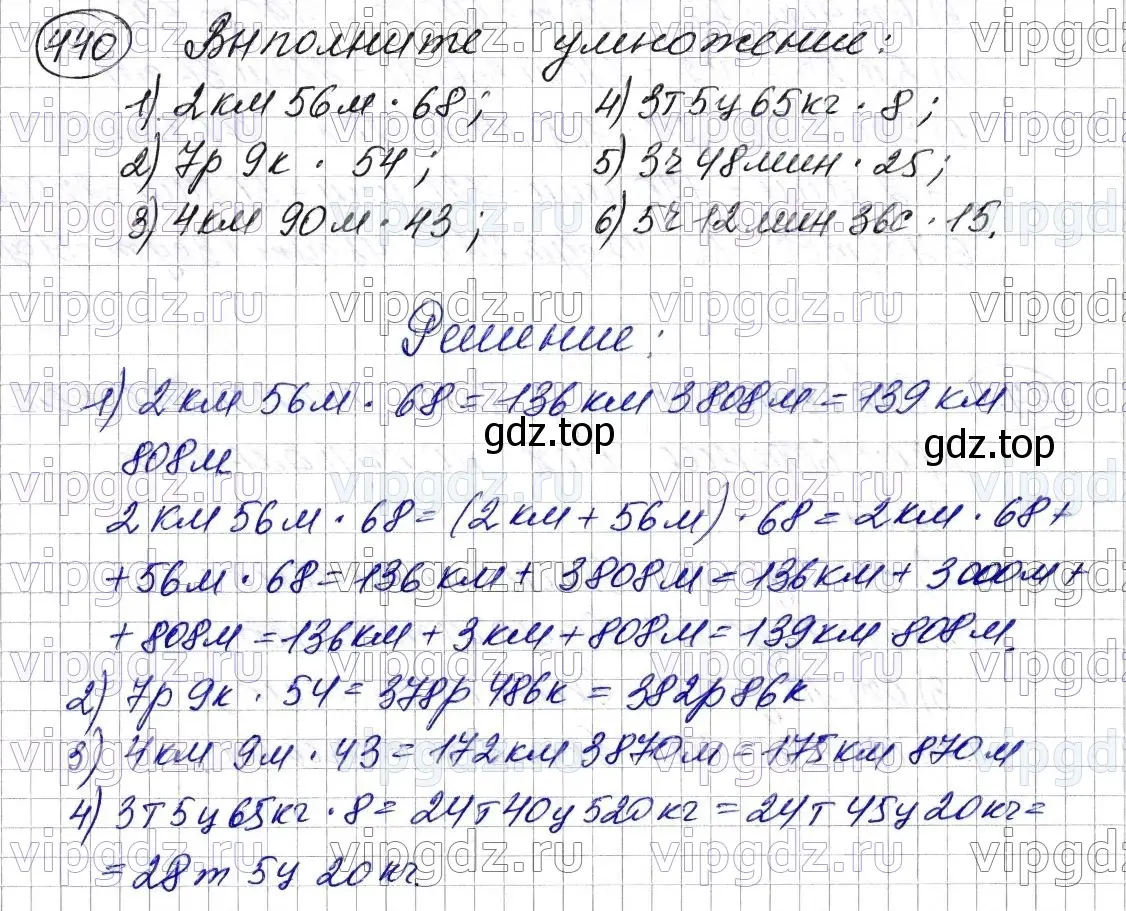 440 Выполните умножение:
1) 2 км 56 м · 68; 4) 3т 5ц 65кг · 8;
2) 7р 9к · 54; 5) 3ч 48мин · 25;
3) 4км 90м · 43; 6) 5ч 12мин 36с · 15.
Решение:
1) 2 км 56м · 68 = 136 км 3808м = 139 км
808м
2 км 56м · 68 = (2км + 56м) · 68 = 2км · 68 +
+ 56м · 68 = 136 км + 3808м = 136км + 3000м +
+ 808м = 136км + 3 км + 808м = 139км 808м.
2) 7р 9к · 54 = 378р 486к = 382р 86к
3) 4км 9м · 43 = 172км 3870м = 175км 870м
4) 3т 5ц 65кг · 8 = 24т 40ц 520кг = 24т 45ц 20кг =
= 28т 5ц 20кг.
gdz.top
gdz.top
vipgdz.ru